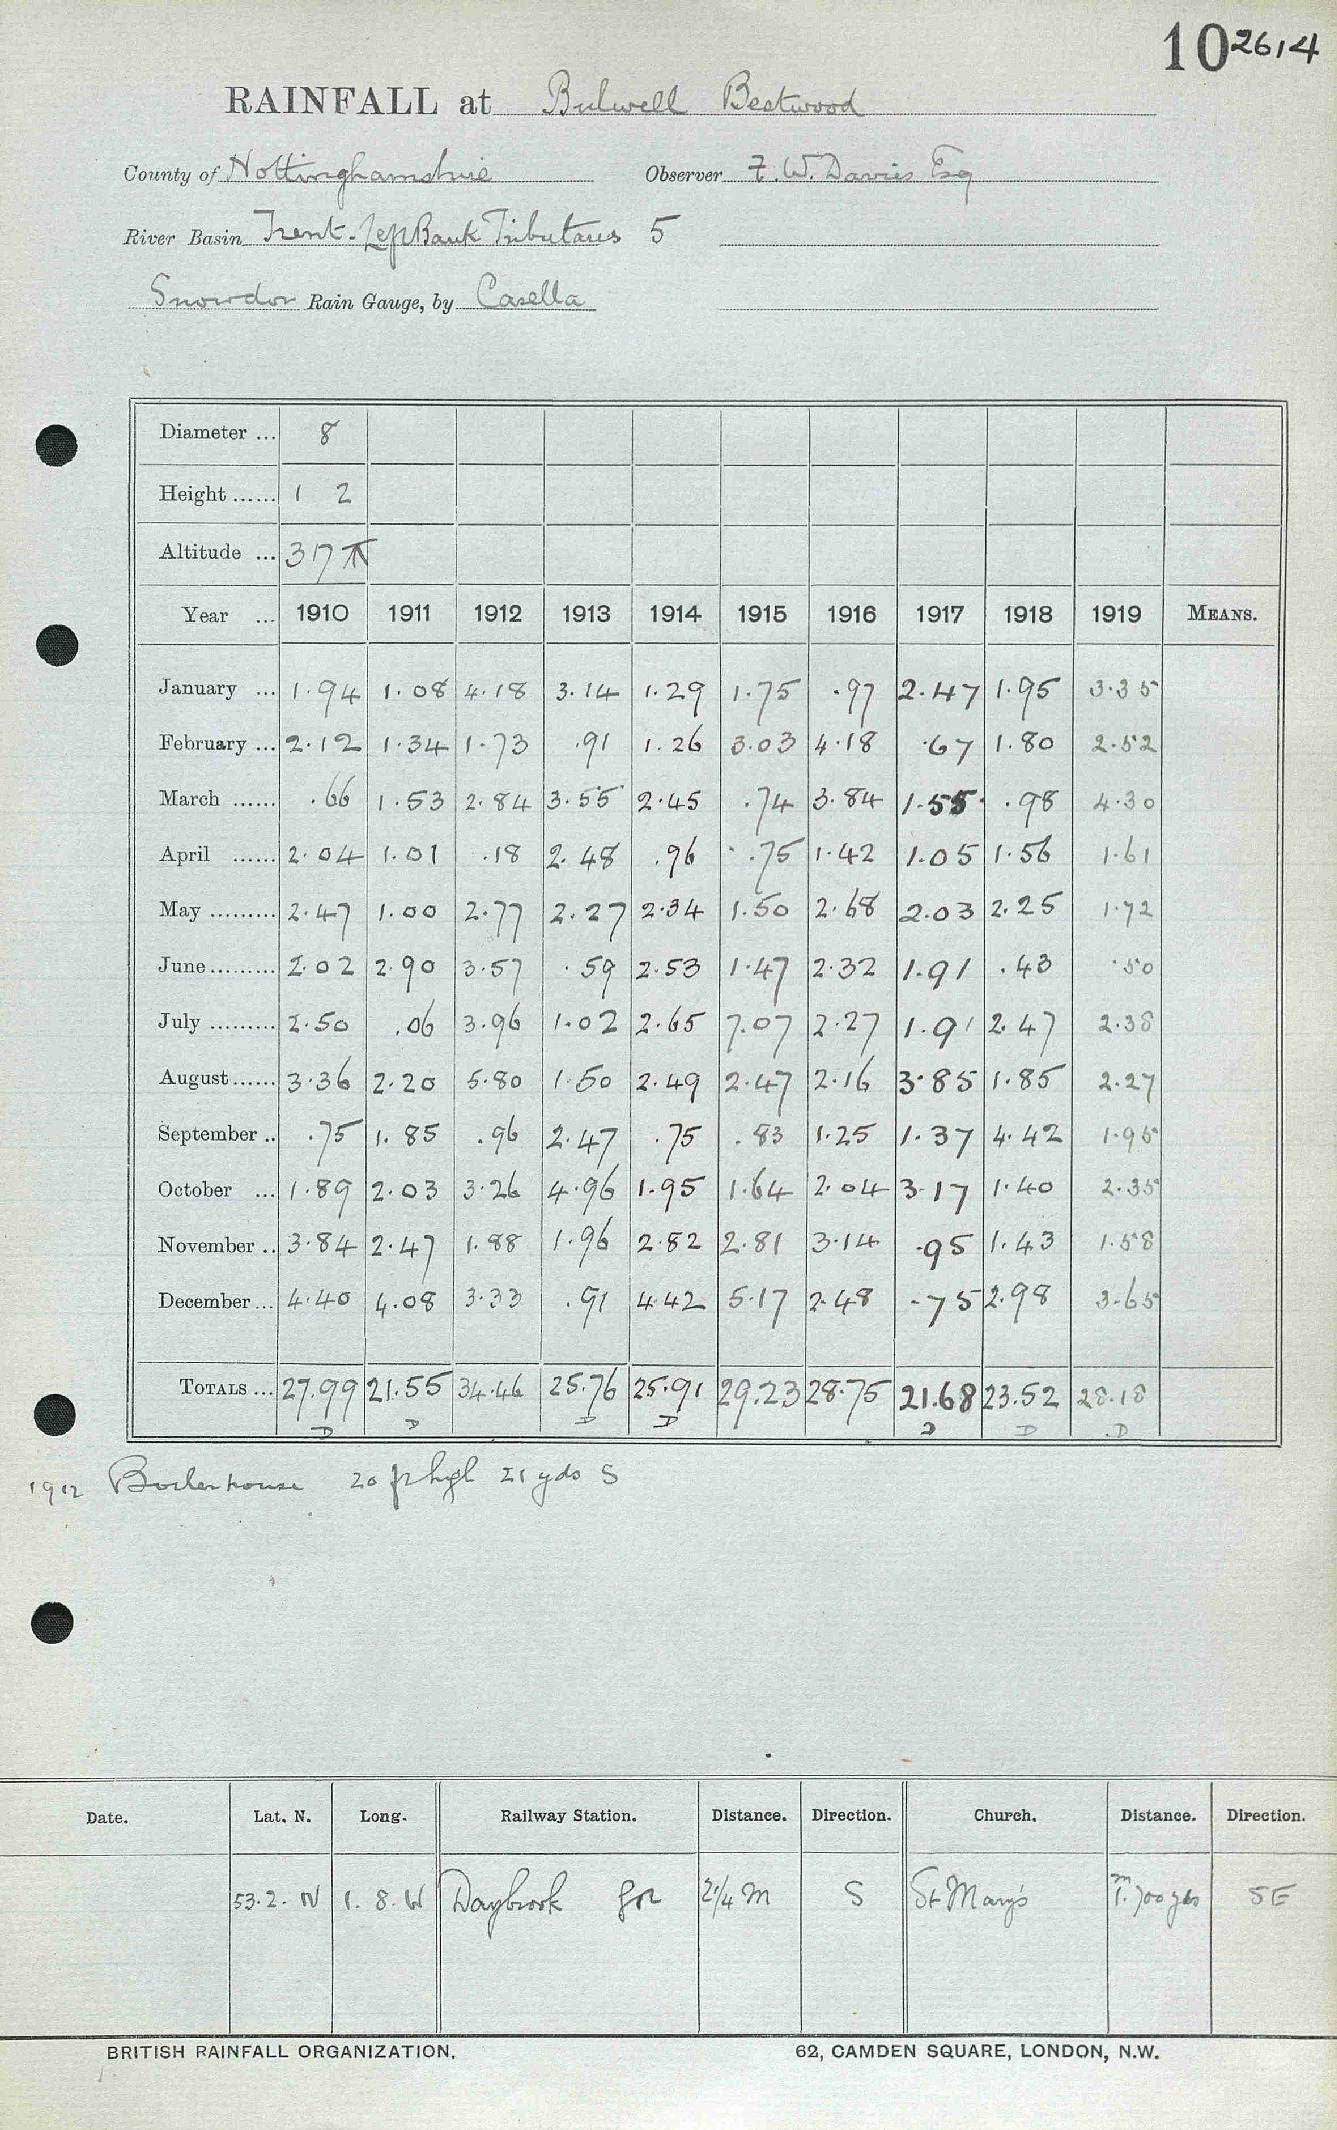 10 2614
RAINFALL at Bulwell Bestwood
County of Nottinghamshire Observer F. W. Davies Esq
River Basin Trent. Left Bank Tributaries 5
Snowdon Rain Gauge, by Casella
Diameter ... 8
Height ...... 1 2
Altitude ... 317
Year ... 1910 1911 1912 1913 1914 1915 1916 1917 1918 1919 MEANS.
January ... 1.94 1.08 4.18 3.14 1.29 1.75 .97 2.47 1.95 3.35
February ... 2.12 1.34 1.73 .91 1.26 3.03 4.18 .67 1.80 2.52
March ...... .66 1.53 2.84 3.55 2.45 .74 3.84 1.55 .98 4.30
April ...... 2.04 1.01 .18 2.48 .96 .75 1.42 1.05 1.56 1.61
May ......... 2.47 1.00 2.77 2.27 2.34 1.50 2.68 2.03 2.25 1.72
June ......... 2.02 2.90 3.57 .59 2.53 1.47 2.32 1.91 .43 .50
July ......... 2.50 .06 3.96 1.02 2.65 7.07 2.27 1.91 2.47 2.38
August ...... 3.36 2.20 5.80 1.50 2.49 2.47 2.16 3.85 1.85 2.27
September .. .75 1.85 .96 2.47 .75 .83 1.25 1.37 4.42 1.95
October ... 1.89 2.03 3.26 4.96 1.95 1.64 2.04 3.17 1.40 2.35
November .. 3.84 2.47 1.88 1.96 2.82 2.81 3.14 .95 1.43 1.58
December ... 4.40 4.08 3.33 .91 4.42 5.17 2.48 .75 2.98 3.65
TOTALS ... 27.99 21.55 34.46 25.76 25.91 29.23 28.75 21.68 23.52 28.18
D D D D D D D
1912 Boilerhouse 20 ft high 21 yds S
Date. Lat. N. Long. Railway Station. Distance. Direction. Church. Distance. Direction.
53.2. N 1. 8. W Daybrook 2 1/4 m S St Mary's 1 m 700 yds SE
BRITISH RAINFALL ORGANIZATION. 62, CAMDEN SQUARE, LONDON, N.W.